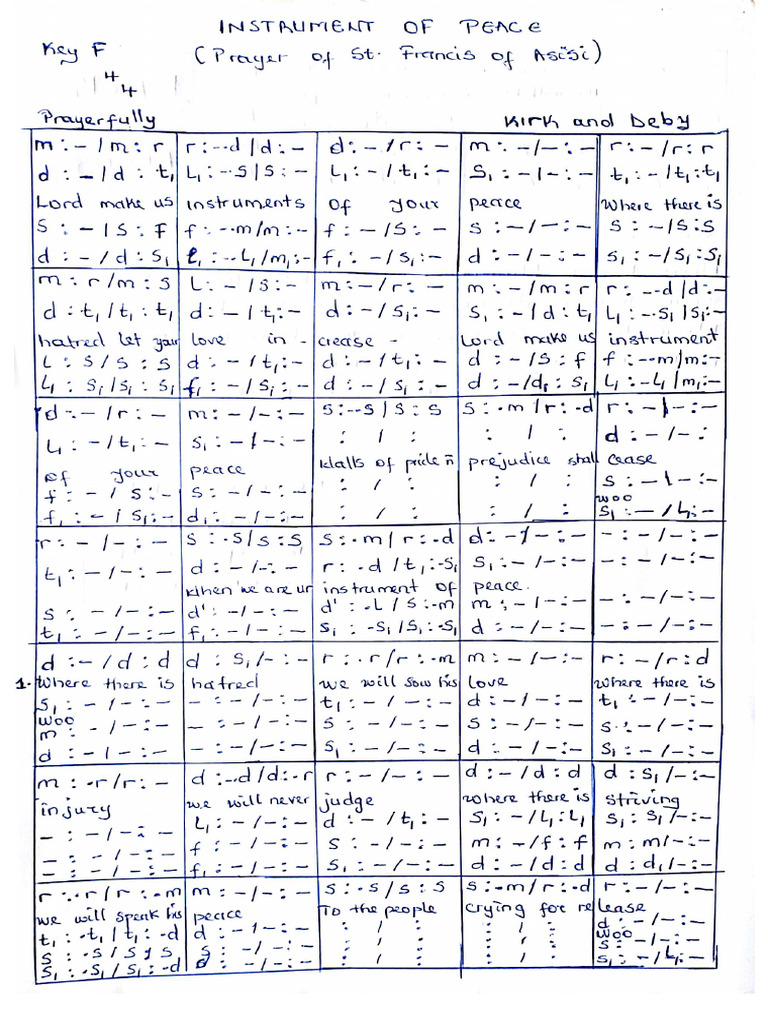 INSTRUMENT OF PEACE
Key F (Prayer of St. Francis of Asisi)
4
4
Prayerfully Kirk and Deby
m : – / m : r r : -·d / d : – d : – / r : – m : – / – : – r : – / r : r
d : – / d : t₁ L₁ : -·s / s : – L₁ : – / t₁ : – S₁ : – / – : – t₁ : – / t₁ : t₁
Lord make us instruments of your peace Where there is
S : – / S : f f : -·m / m : – f : – / S : – s : – / – : – S : – / S : S
d : – / d : S₁ f₁ : -·L₁ / m₁ : – f₁ : – / s₁ : – d : – / – : – s₁ : – / s₁ : s₁
m : r / m : s L : – / s : – m : – / r : – m : – / m : r r : -·d / d : –
d : t₁ / t₁ : t₁ d : – / t₁ : – d : – / s₁ : – S₁ : – / d : t₁ L₁ : -·s₁ / s₁ : –
hatred let your love in - crease - Lord make us instrument
L : s / s : s d : – / t₁ : – d : – / t₁ : – d : – / s : f f : -·m / m : –
L₁ : s₁ / s₁ : s₁ f₁ : – / s₁ : – d : – / s₁ : – d : – / d₁ : s₁ L₁ : – L₁ / m₁ : –
d : – / r : – m : – / – : – s : -·s / s : s s : ·m / r : ·d r : – / – : –
L₁ : – / t₁ : – s₁ : – / – : – : / : : / : d : – / – :
of your peace Walls of pride n prejudice shall cease
f : – / s : – s : – / – : – : / : : / : s : – / – : –
woo
f₁ : – / s₁ : – d₁ : – / – : – : / : : / : s₁ : – / L₁ : –
r : – / – : – s : ·s / s : s s : ·m / r : ·d d : – / – : – – : – / – : –
t₁ : – / – : – d : – / – : – r : ·d / t₁ : ·s₁ s₁ : – / – : – – : – / – : –
When we are ur instrument of peace.
s : – / – : – d' : – / – : – d' : ·L / s : ·m m : – / – : – – : – / – : –
t₁ : – / – : – f₁ : – / – : – s₁ : ·s₁ / s₁ : ·s₁ d : – / – : – – : – / – : –
d : – / d : d d : s₁ / – : – r : ·r / r : ·m m : – / – : – r : – / r : d
1. Where there is hatred we will sow his love where there is
s₁ : – / – : – – : – / – : – t₁ : – / – : – d : – / – : – t₁ : – / – : –
woo
m : – / – : – – : – / – : – s : – / – : – s : – / – : – s : – / – : –
d : – / – : – – : – / – : – s₁ : – / – : – d : – / – : – s₁ : – / – : –
m : ·r / r : – d : -·d / d : ·r r : – / – : – d : – / d : d d : s₁ / – : –
injury we will never judge where there is striving
– : – / – : – L₁ : – / – : – d : – / t₁ : – s₁ : – / L₁ : L₁ s₁ : s₁ / – : –
– : – / – : – f : – / – : – s : – / – : – m : – / f : f m : m / – : –
– : – / – : – f₁ : – / – : – s₁ : – / – : – d : – / d : d d : d₁ / – : –
r : ·r / r : ·m m : – / – : – s : ·s / s : s s : ·m / r : ·d r : – / – : –
we will speak his peace To the people crying for re lease
t₁ : ·t₁ / t₁ : ·d d : – / – : – : / : : / : d : – / – : –
woo
s : ·s / s : s s : – / – : – : / : : / : s : – / – : –
s₁ : ·s₁ / s₁ : ·d d : – / – : – : / : : / : s₁ : – / L₁ : –